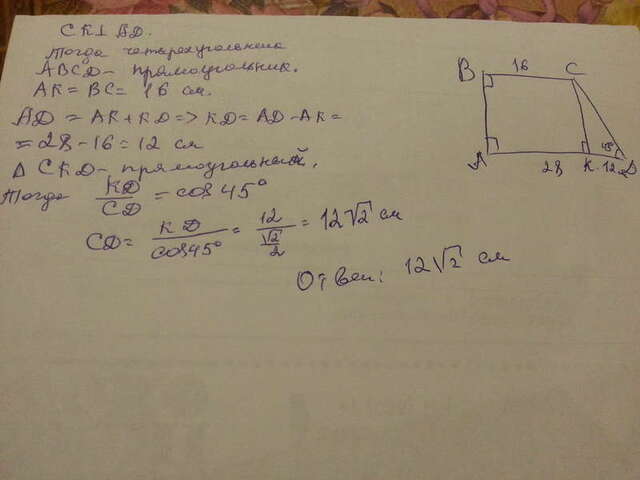 CK⊥AD.
Тогда четырехугольник
ABCD - прямоугольник.
AK = BC = 16 см.
AD = AK + KD => KD = AD - AK =
= 28 - 16 = 12 см
Δ CKD - прямоугольный.
Тогда KD/CD = cos 45°
CD = KD/cos45° = 12/(√2/2) = 12√2 см
Ответ: 12√2 см
B 16 C
A 28 K 12 45° D